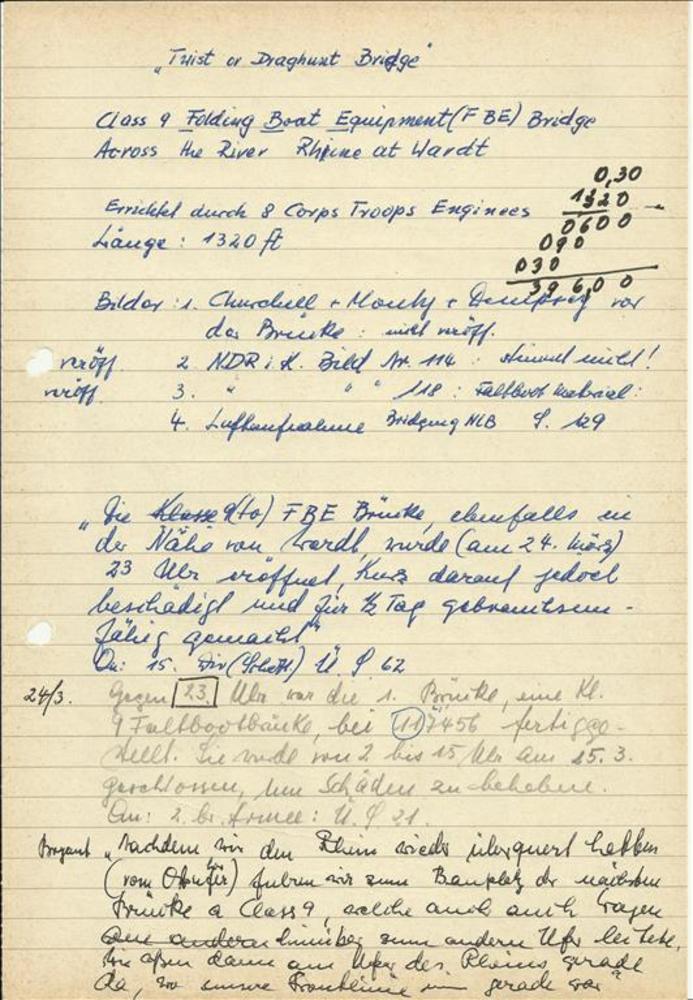 "Twist or Draghunt Bridge"
Class 9 Folding Boat Equipment (FBE) Bridge
Across the River Rhine at Wardt
0,30
1320
Errichtet durch 8 Corps Troops Engineers
0600
Länge: 1320 ft
090
030
396,00
Bilder: 1. Churchill + Monty + Dempsey vor
der Brücke: nicht veröff.
veröff. 2. NDRiK. Bild Nr. 114 : stimmt nicht!
veröff. 3. " " " 118 : Faltboot Material:
4. Luftaufnahme Bridging NWE S. 129
"Die Klasse 9 (to) FBE Brücke, ebenfalls in
der Nähe von Wardt, wurde (am 24. März)
23 Uhr eröffnet, kurz darauf jedoch
beschädigt und für ½ Tag gebrauchsun-
fähig gemacht"
Qu: 15. Div (Schott.) Ü S 62
24/3. Gegen 23. Uhr war die 1. Brücke, eine Kl.
9 Faltbootbrücke, bei 117456 fertigge-
stellt. Sie wurde von 2 bis 15 Uhr am 25.3.
geschlossen, um Schäden zu beheben.
Qu: 2. br. Armee: Ü. S 21.
"Nachdem wir den Rhein wieder überquert hatten
(vom Ostufer) fuhren wir zum Bauplatz der nächsten
Brücke a Class 9, welche auch auch wagen
hinüber zum andern Ufer leitete.
Wir aßen dann am Ufer des Rheins gerade
da, wo unsere Frontlinie gerade war"